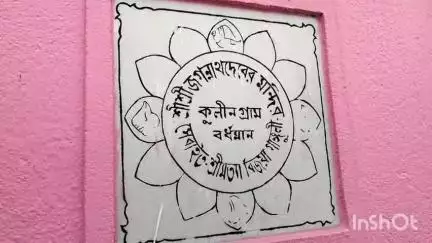 শ্রীশ্রী জগন্নাথদেবের মন্দির
কুলীন গ্রাম
বর্ধমান
সেবাইত-শ্রীমত্যা বিজয়া গাঙ্গুলী
InShOt